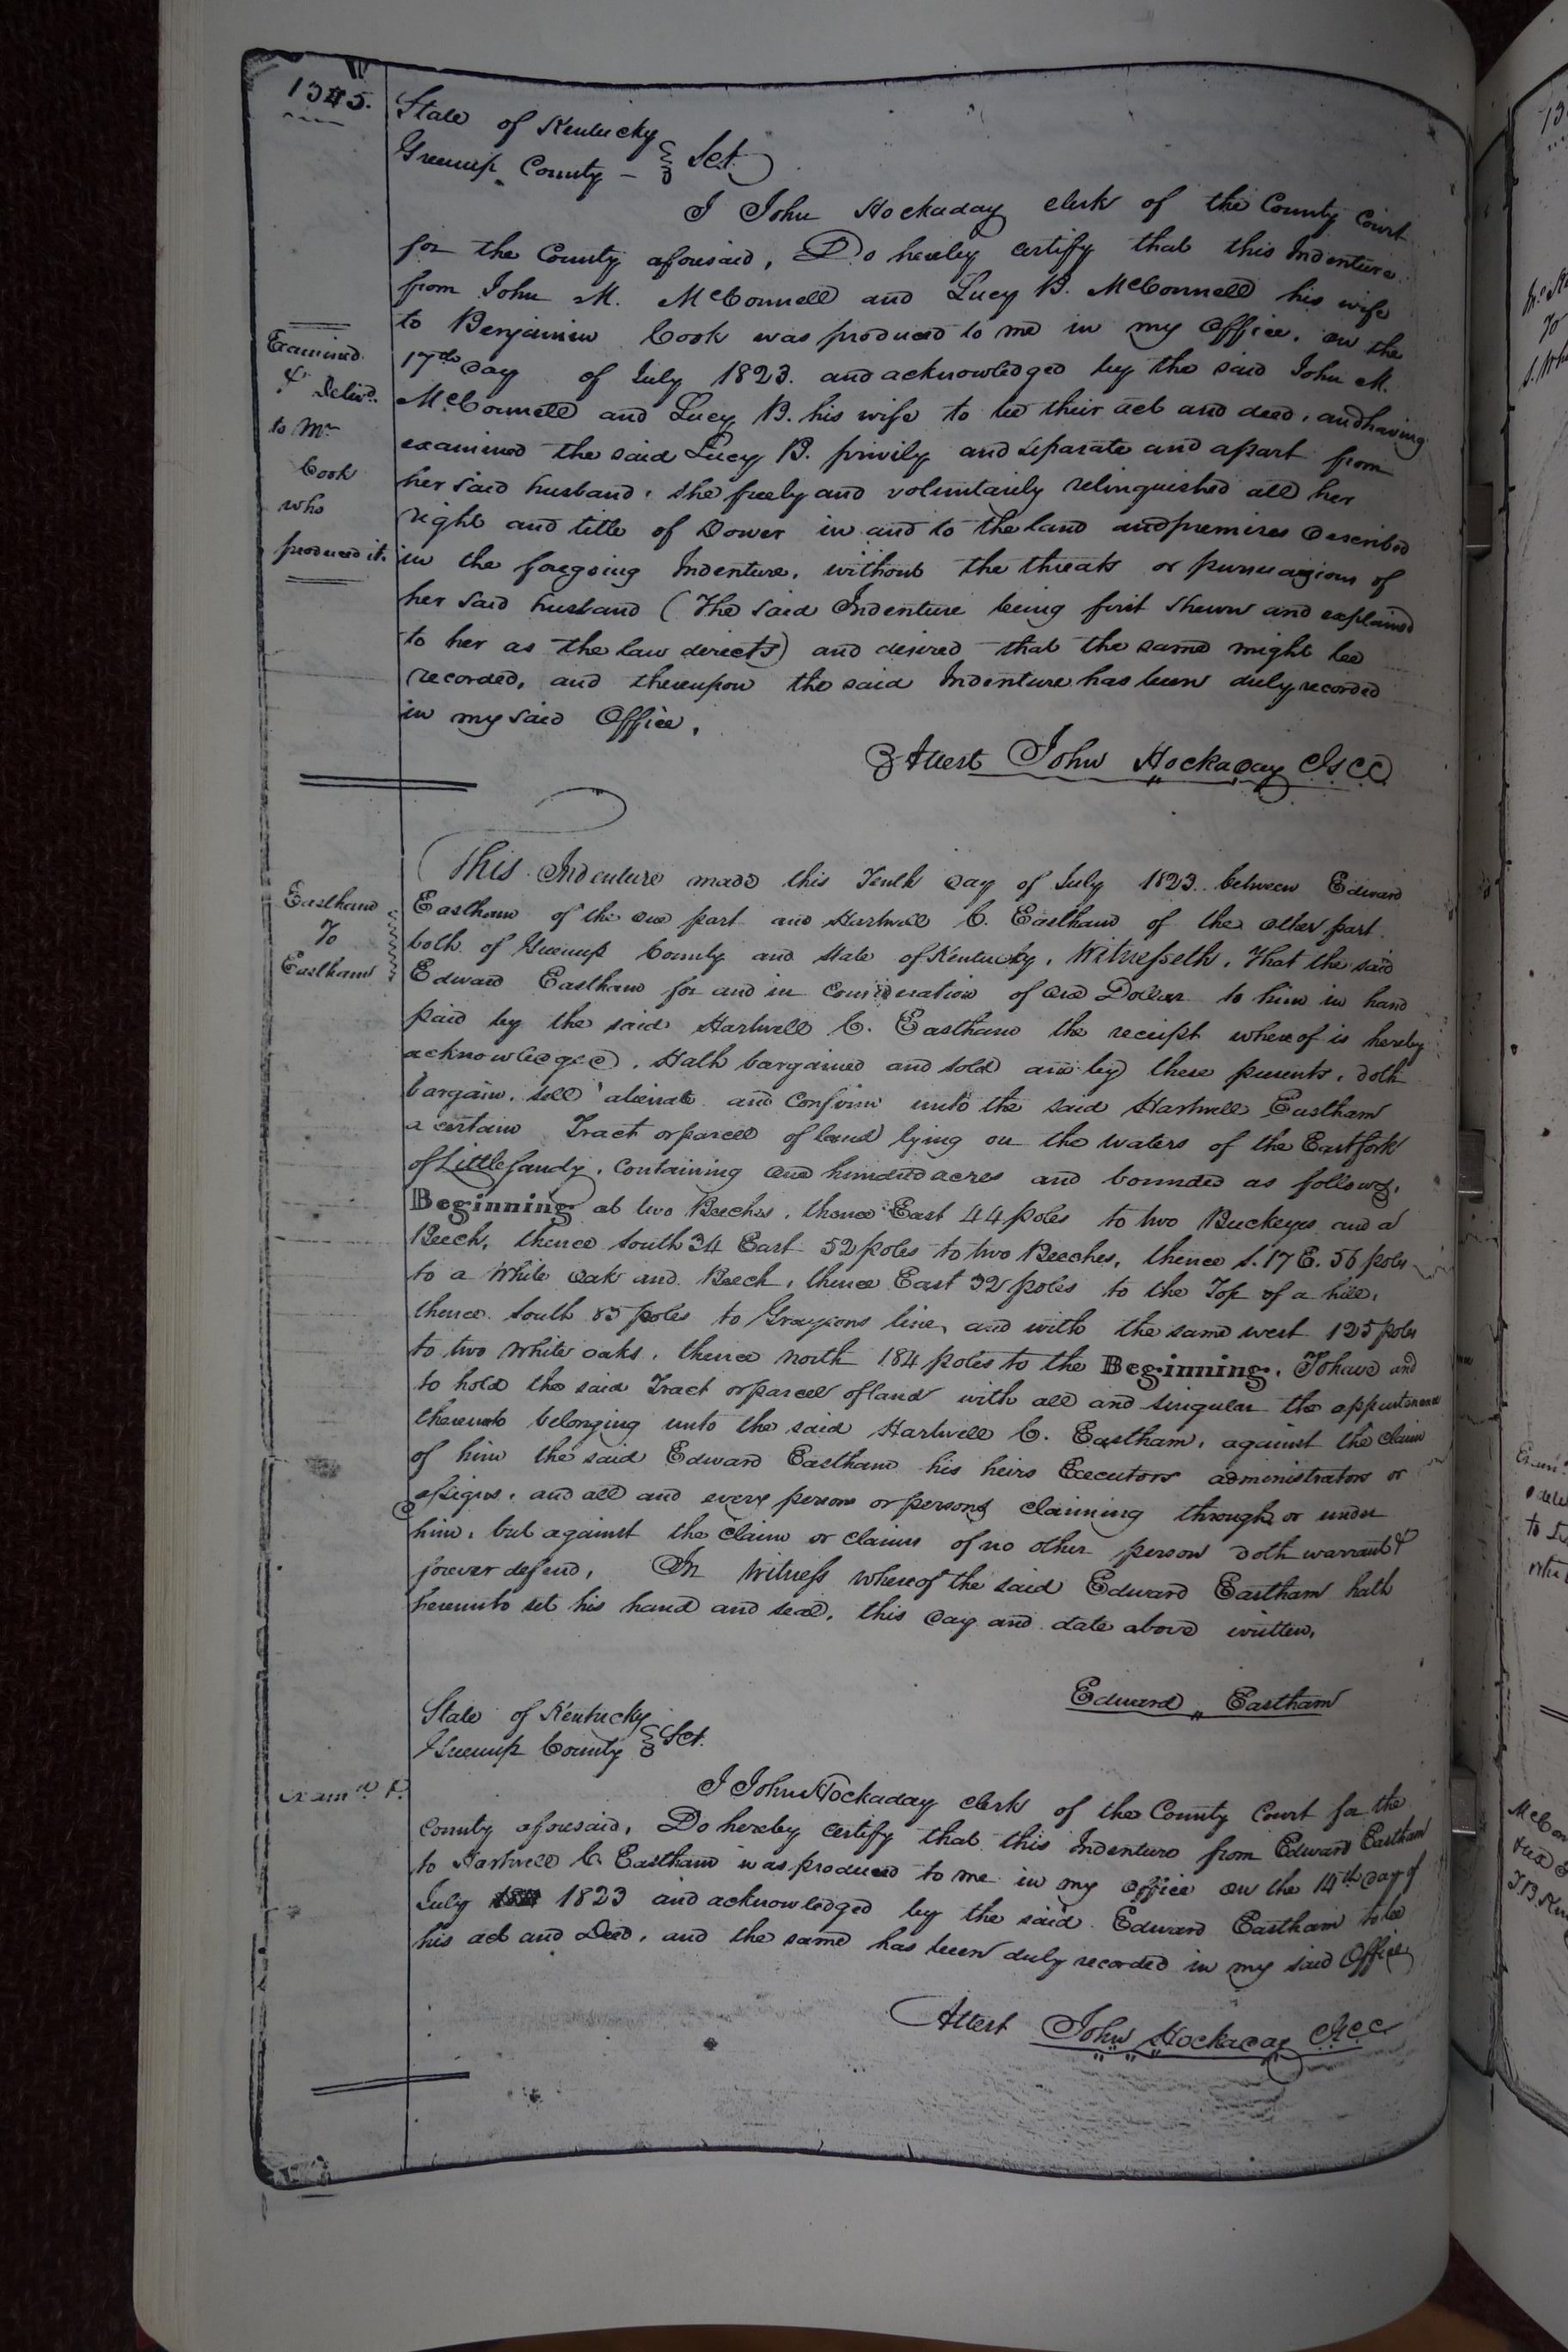 1345.
State of Kentucky
Greenup County – Sct.
I John Hockaday clerk of the County Court
for the County aforesaid, Do hereby certify that this Indenture
from John M. McConnell and Lucy B. McConnell his wife
to Benjamin Cook was produced to me in my Office, on the
17th day of July 1823. and acknowledged by the said John M.
McConnell and Lucy B. his wife to be their act and deed, and having
examined the said Lucy B. privily and separate and apart from
her said husband, she freely and voluntarily relinquished all her
right and title of Dower in and to the land and premises described
in the foregoing Indenture, without the threats or persuasions of
her said husband (The said Indenture being first shewn and explained
to her as the law directs) and desired that the same might be
recorded, and thereupon the said Indenture has been duly recorded
in my said Office.
Attest John Hockaday
Examined
& Delivd.
to Mr
Cook
who
produced it.
Eastham
To
Eastham
This Indenture made this Tenth day of July 1823. between Edward
Eastham of the one part and Hartwell C. Eastham of the other part.
both of Greenup County and State of Kentucky, Witnesseth, That the said
Edward Eastham for and in Consideration of one Dollar to him in hand
paid by the said Hartwell C. Eastham the receipt whereof is hereby
acknowledged, Hath bargained and sold and by these presents, doth
bargain, sell alienate and Confirm unto the said Hartwell Eastham
a certain Tract or parcel of land lying on the waters of the East fork
of Little Sandy, Containing one hundred acres and bounded as follows,
Beginning at two Beeches, thence East 44 poles to two Buckeyes and a
Beech, thence South 34 East 52 poles to two Beeches, thence S. 17 E. 56 poles
to a White Oak and Beech, thence East 32 poles to the Top of a hill,
thence South 85 poles to Graysons line, and with the same west 125 poles
to two White oaks, thence north 184 poles to the Beginning, To have and
to hold the said Tract or parcel of land with all and singular the
thereunto belonging unto the said Hartwell C. Eastham, against the claim
of him the said Edward Eastham his heirs Executors administrators or
assigns, and all and every person or persons claiming through or under
him, but against the claim or claims of no other person doth warrant &
forever defend, In Witness whereof the said Edward Eastham hath
hereunto set his hand and seal, this day and date above written,
Edward Eastham
State of Kentucky
Greenup County Sct.
I John Hockaday clerk of the County Court for the
county aforesaid, Do hereby certify that this Indenture from Edward Eastham
to Hartwell C. Eastham was produced to me in my office on the 14th day of
July 1823 and acknowledged by the said Edward Eastham to be
his act and Deed, and the same has been duly recorded in my said Office
Attest John Hockaday